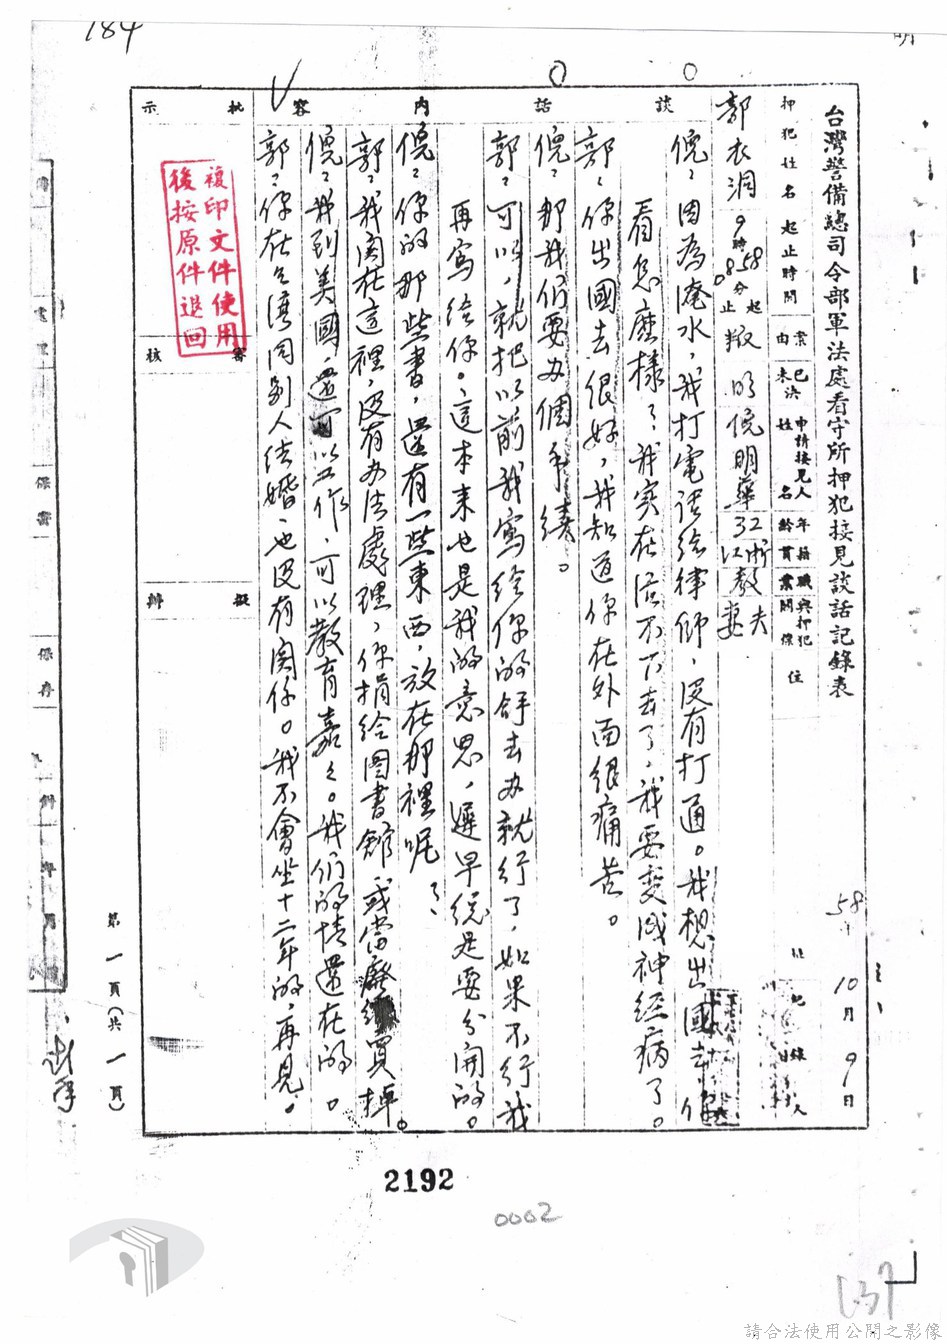 184
台灣警備總司令部軍法處看守所押犯接見談話記錄表
58年10月9日
押犯姓名
起止時間
案由
已決未決
申請接見人姓名
年齡
籍貫
職業
與押犯關係
住址
郭衣洞
9時58分起
止
叛
倪明華
32
浙江
教
夫妻
談話內容
倪:因為淹水,我打電話給律師,沒有打通。我想出國去
看怎麼樣?我实在活不下去了,我要变成神经病了。
郭:你出國去很好,我知道你在外面很痛苦。
倪:那我们要办個手续。
郭:可以,就把以前我寫给你的
去办就行了,如果不行我
再寫给你。這本来也是我的意思,遲早總是要分開的。
倪:你的那些書,還有一些東西,放在那裡呢?
郭:我関在這裡,没有办法處理,你捐给圖書舘或當廢紙買掉。
倪:我到美國,還可以工作,可以教育嘉々。我们的情還在的。
郭:你在台湾同别人结婚也没有関係。我不會坐十二年的,再見。
批示
審核
擬辦
複印文件使用
後按原件退回
第一頁(共一頁)
2192
0002
請合法使用公開之影像